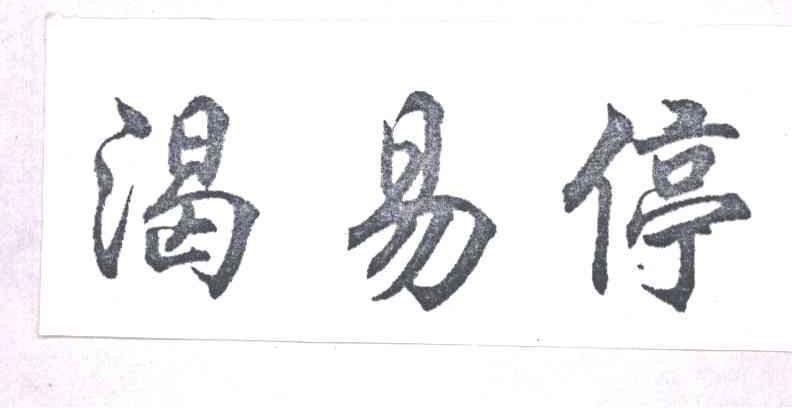 渴易停